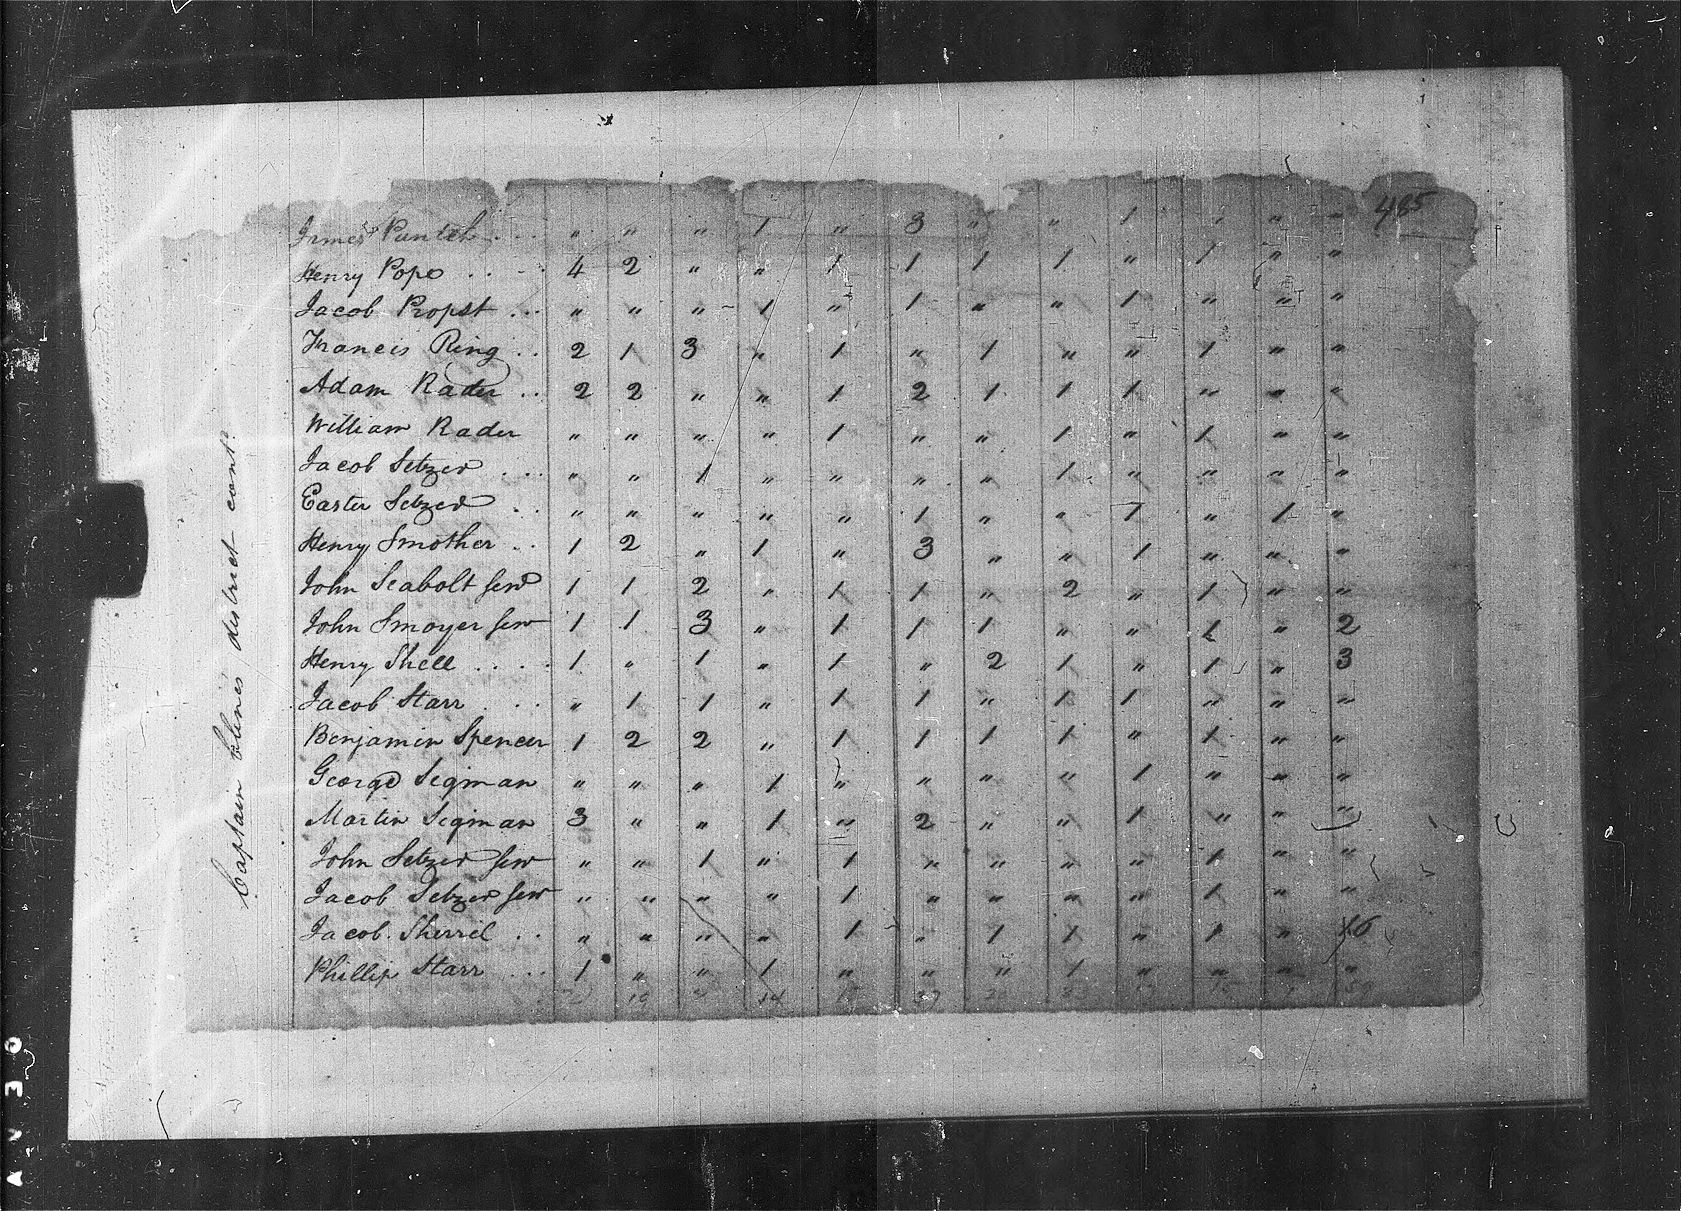 485
Captain Clines district cont.
James Panteh . . . " " " 1 " 3 " " 1 " " "
Henry Pope . . - . 4 2 " " 1 1 1 1 " 1 " "
Jacob Propst . . . " " " 1 " 1 " " 1 " " "
Francis Ring . . 2 1 3 " 1 " 1 " " 1 " "
Adam Rader . . 2 2 " " 1 2 1 1 1 " " "
William Rader " " " " 1 " " 1 " 1 " "
Jacob Setzer . . . " " 1 " " " " 1 " " " "
Easter Setzer . . " " " " " 1 " " 1 " 1 "
Henry Smother . . 1 2 " 1 " 3 " " 1 " " "
John Seabolt Senr 1 1 2 " 1 1 " 2 " 1 " "
John Smoyer Senr 1 1 3 " 1 1 1 " " 1 " 2
Henry Shell . . . . 1 " 1 " 1 " 2 1 " 1 " 3
Jacob Starr . . . " 1 1 " 1 1 " 1 1 " " "
Benjamin Spencer 1 2 2 " 1 1 1 1 " 1 " "
George Sigman " " " 1 " " " " 1 " " "
Martin Sigman 3 " " 1 " 2 " " 1 " " "
John Setzer Senr " " 1 " 1 " " " " 1 " "
Jacob Setzer Senr " " " " 1 " " " " 1 " "
Jacob Sherril . . " " " " 1 " 1 1 " 1 " 16
Phillip Starr . . . 1 " " 1 " " " 1 " " " "
14